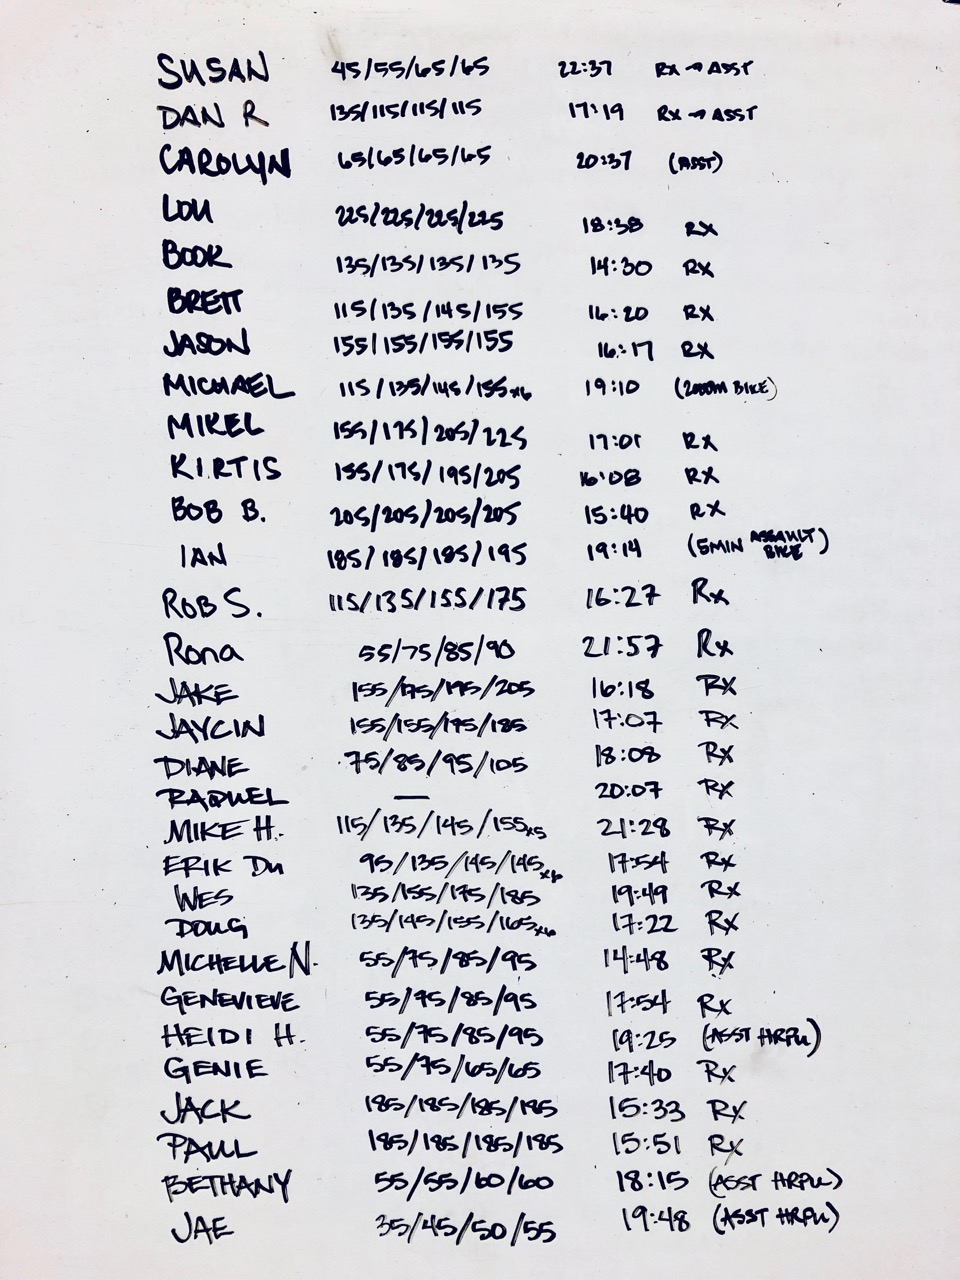 SUSAN 45/55/65/65 22:37 RX → ASST
DAN R 135/115/115/115 17:19 RX → ASST
CAROLYN 65/65/65/65 20:37 (ASST)
LOU 225/225/225/225 18:38 RX
BOOK 135/135/135/135 14:30 RX
BRETT 115/135/145/155 16:20 RX
JASON 155/155/155/155 16:17 RX
MICHAEL 115/135/145/155x6 19:10 (2000M BIKE)
MIKEL 155/175/205/225 17:01 RX
KIRTIS 155/175/195/205 16:08 RX
BOB B. 205/205/205/205 15:40 RX
IAN 185/185/185/195 19:14 (5MIN ASSAULT BIKE)
ROB S. 115/135/155/175 16:27 Rx
Rona 55/75/85/90 21:57 Rx
JAKE 155/175/195/205 16:18 RX
JAYCIN 155/155/175/185 17:07 RX
DIANE 75/85/95/105 18:08 RX
RAQUEL — 20:07 RX
MIKE H. 115/135/145/155x5 21:28 RX
ERIK Du 95/135/145/145x6 17:54 RX
WES 135/155/175/185 19:49 RX
DOUG 135/145/155/165x6 17:22 RX
MICHELLE N. 55/75/85/95 14:48 RX
GENEVIEVE 55/75/85/95 17:54 RX
HEIDI H. 55/75/85/95 19:25 (ASST HRPU)
GENIE 55/75/65/65 17:40 RX
JACK 185/185/185/185 15:33 RX
PAUL 185/185/185/185 15:51 RX
BETHANY 55/55/60/60 18:15 (ASST HRPU)
JAE 35/45/50/55 19:48 (ASST HRPU)